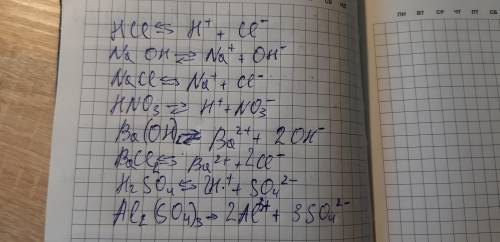 HCl ⇆ H⁺ + Cl⁻
NaOH ⇄ Na⁺ + OH⁻
NaCl ⇆ Na⁺ + Cl⁻
HNO₃ ⇄ H⁺ + NO₃⁻
Ba(OH)₂ ⇄ Ba²⁺ + 2OH⁻
BaCl₂ ⇆ Ba²⁺ + 2Cl⁻
H₂SO₄ ⇆ 2H⁺ + SO₄²⁻
Al₂(SO₄)₃ → 2Al³⁺ + 3SO₄²⁻
СБ НД
ПН ВТ СР ЧТ ПТ СБ